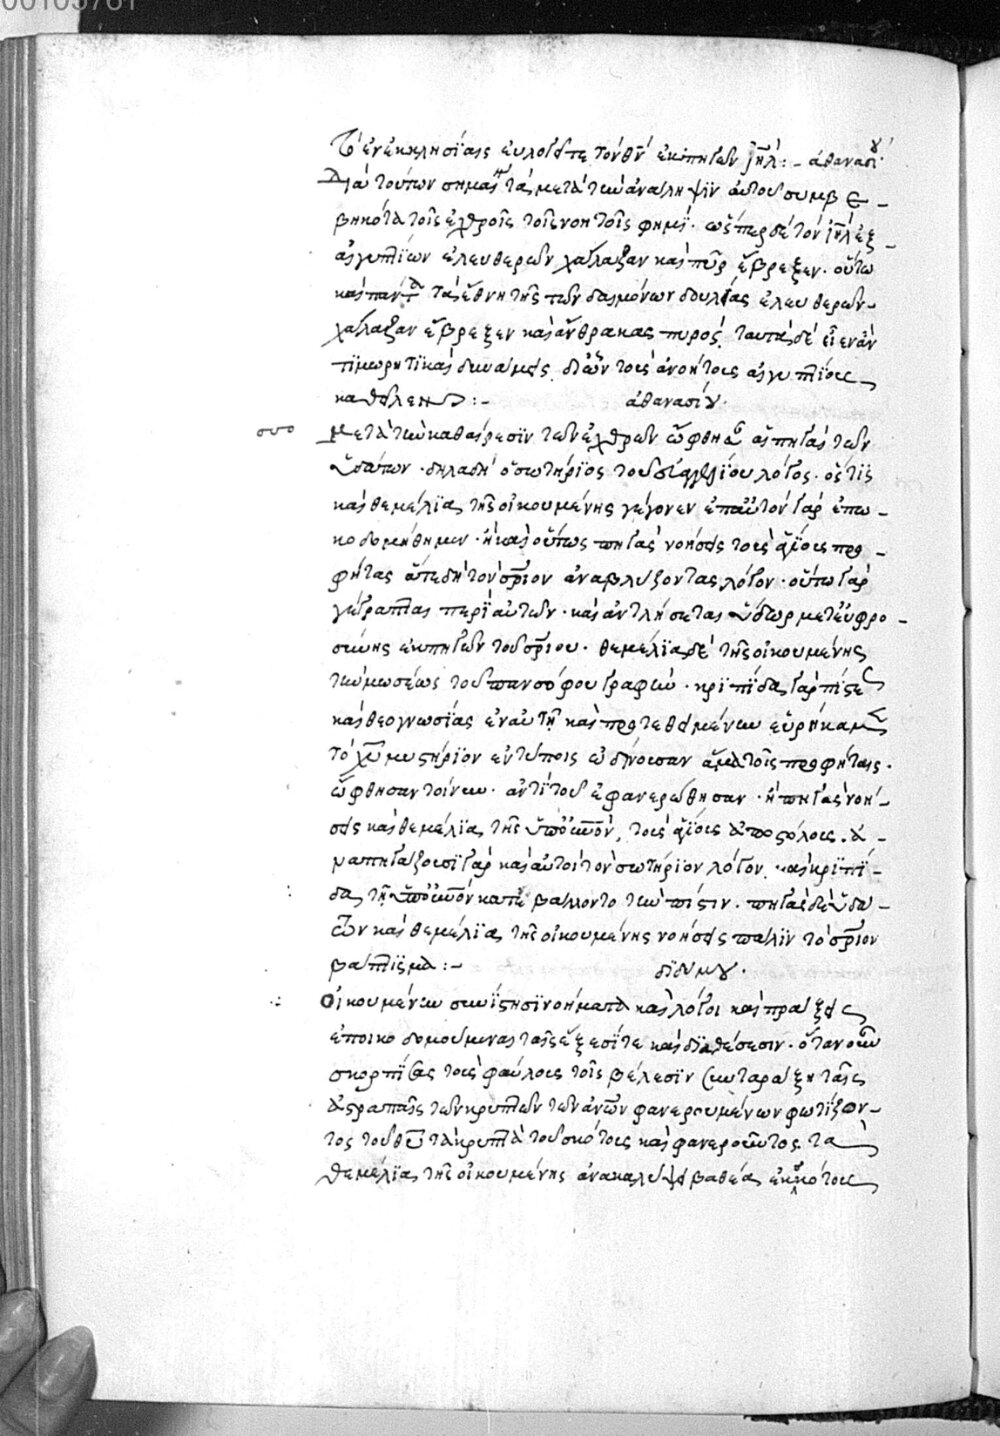 00105761
τ' ἐν ἐκκλησίαις εὐλογεῖτε τὸν θν̄ ἐκ πηγῶν ιηλ :- ἀθανασίου
Διὰ τούτων σημαίνει τὰ μετὰ τὴν ἀνάληψιν αὐτοῦ συμβε-
βηκότα τοῖς ἐχθροῖς τοῖς νοητοῖς φημί· ὥσπερ δὲ τὸν ιηλ ἐξ
αἰγυπτίων ἐλευθερῶν χάλαζαν καὶ πῦρ ἔβρεξεν· οὕτω
καὶ πάντα τὰ ἔθνη τῆς τῶν δαιμόνων δουλείας ἐλευθερῶν
χάλαζαν ἔβρεξεν καὶ ἄνθρακας πυρός· ταῦτα δὲ εἶεν ἂν
τιμωρητικαὶ δυνάμεις, δι' ὧν τοὺς ἀνοήτους αἰγυπτίους
καθεῖλεν :- ἀθανασίου·
Μετὰ τὴν καθαίρεσιν τῶν ἐχθρῶν ὤφθησαν αἱ πηγαὶ τῶν
ὑδάτων· δηλαδὴ ὁ σωτήριος τοῦ εὐαγγελίου λόγος· ὅστις
καὶ θεμέλια τῆς οἰκουμένης γέγονεν ἐπ' αὐτὸν γὰρ ἐπω-
κοδομήθημεν· ἢ καὶ οὕτως πηγὰς νοήσεις τοὺς ἁγίους προ-
φήτας ἅτε δὴ τὸν σριον ἀναβλύζοντας λόγον· οὕτω γὰρ
γέγραπται περὶ αὐτῶν· καὶ ἀντλήσεται ὕδωρ μετ' εὐφρο-
σύνης ἐκ πηγῶν τοῦ σριου· θεμέλια δὲ τῆς οἰκουμένης
τὴν μωσέως τοῦ πανσόφου γραφήν· κριπῖδα γὰρ πίστεως
καὶ θεογνωσίας ἐν αὐτῇ καὶ προτεθειμένην εὑρήκαμεν
τὸ χῦ μυστήριον ἐν τύποις ὠδίνουσαν ἅμα τοῖς προφήταις·
ὤφθησαν τοίνυν· ἀντὶ τοῦ ἐφανερώθησαν· ἢ πηγὰς νοή-
σεις καὶ θεμέλια τῆς ὑπ' οὐνόν, τοὺς ἁγίους ἀποστόλους· ἀ-
ναπηγάζουσι γὰρ καὶ αὐτοὶ τὸν σωτήριον λόγον, καὶ κρηπῖ-
δα τῇ ὑπ' οὐνὸν κατεβάλλοντο τὴν πίστιν· πηγὰς δὲ ὑδά-
των καὶ θεμέλια τῆς οἰκουμένης νοήσεις πάλιν τὸ σριον
βάπτισμα :- διδύμου·
Οἰκουμένην συνίστησι νοήματα καὶ λόγοι καὶ πράξεις
ἐποικοδομούμεναι ταῖς ἕξεσί τε καὶ διαθέσεσιν· ὅταν οὖν
σκορπίσας τοὺς φαύλους τοῖς βέλεσιν συνταράξῃ ταῖς
ἀστραπαῖς τῶν κρυπτῶν τῶν ἀνων φανερουμένων φωτίζον-
τος τοῦ θῦ τὰ κρυπτὰ τοῦ σκότους καὶ φανεροῦντος τὰ
θεμέλια τῆς οἰκουμένης ἀνακαλύψει βαθέα ἐκ σκότους